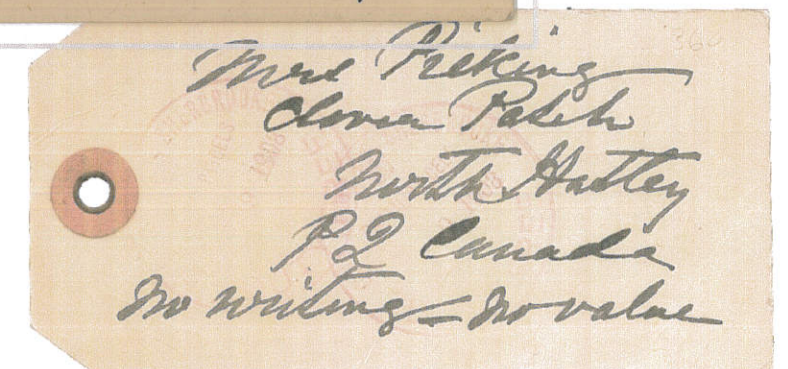 Mrs Picking
Clover Patch
North Hatley
P2 Canada
No writing – No value
360